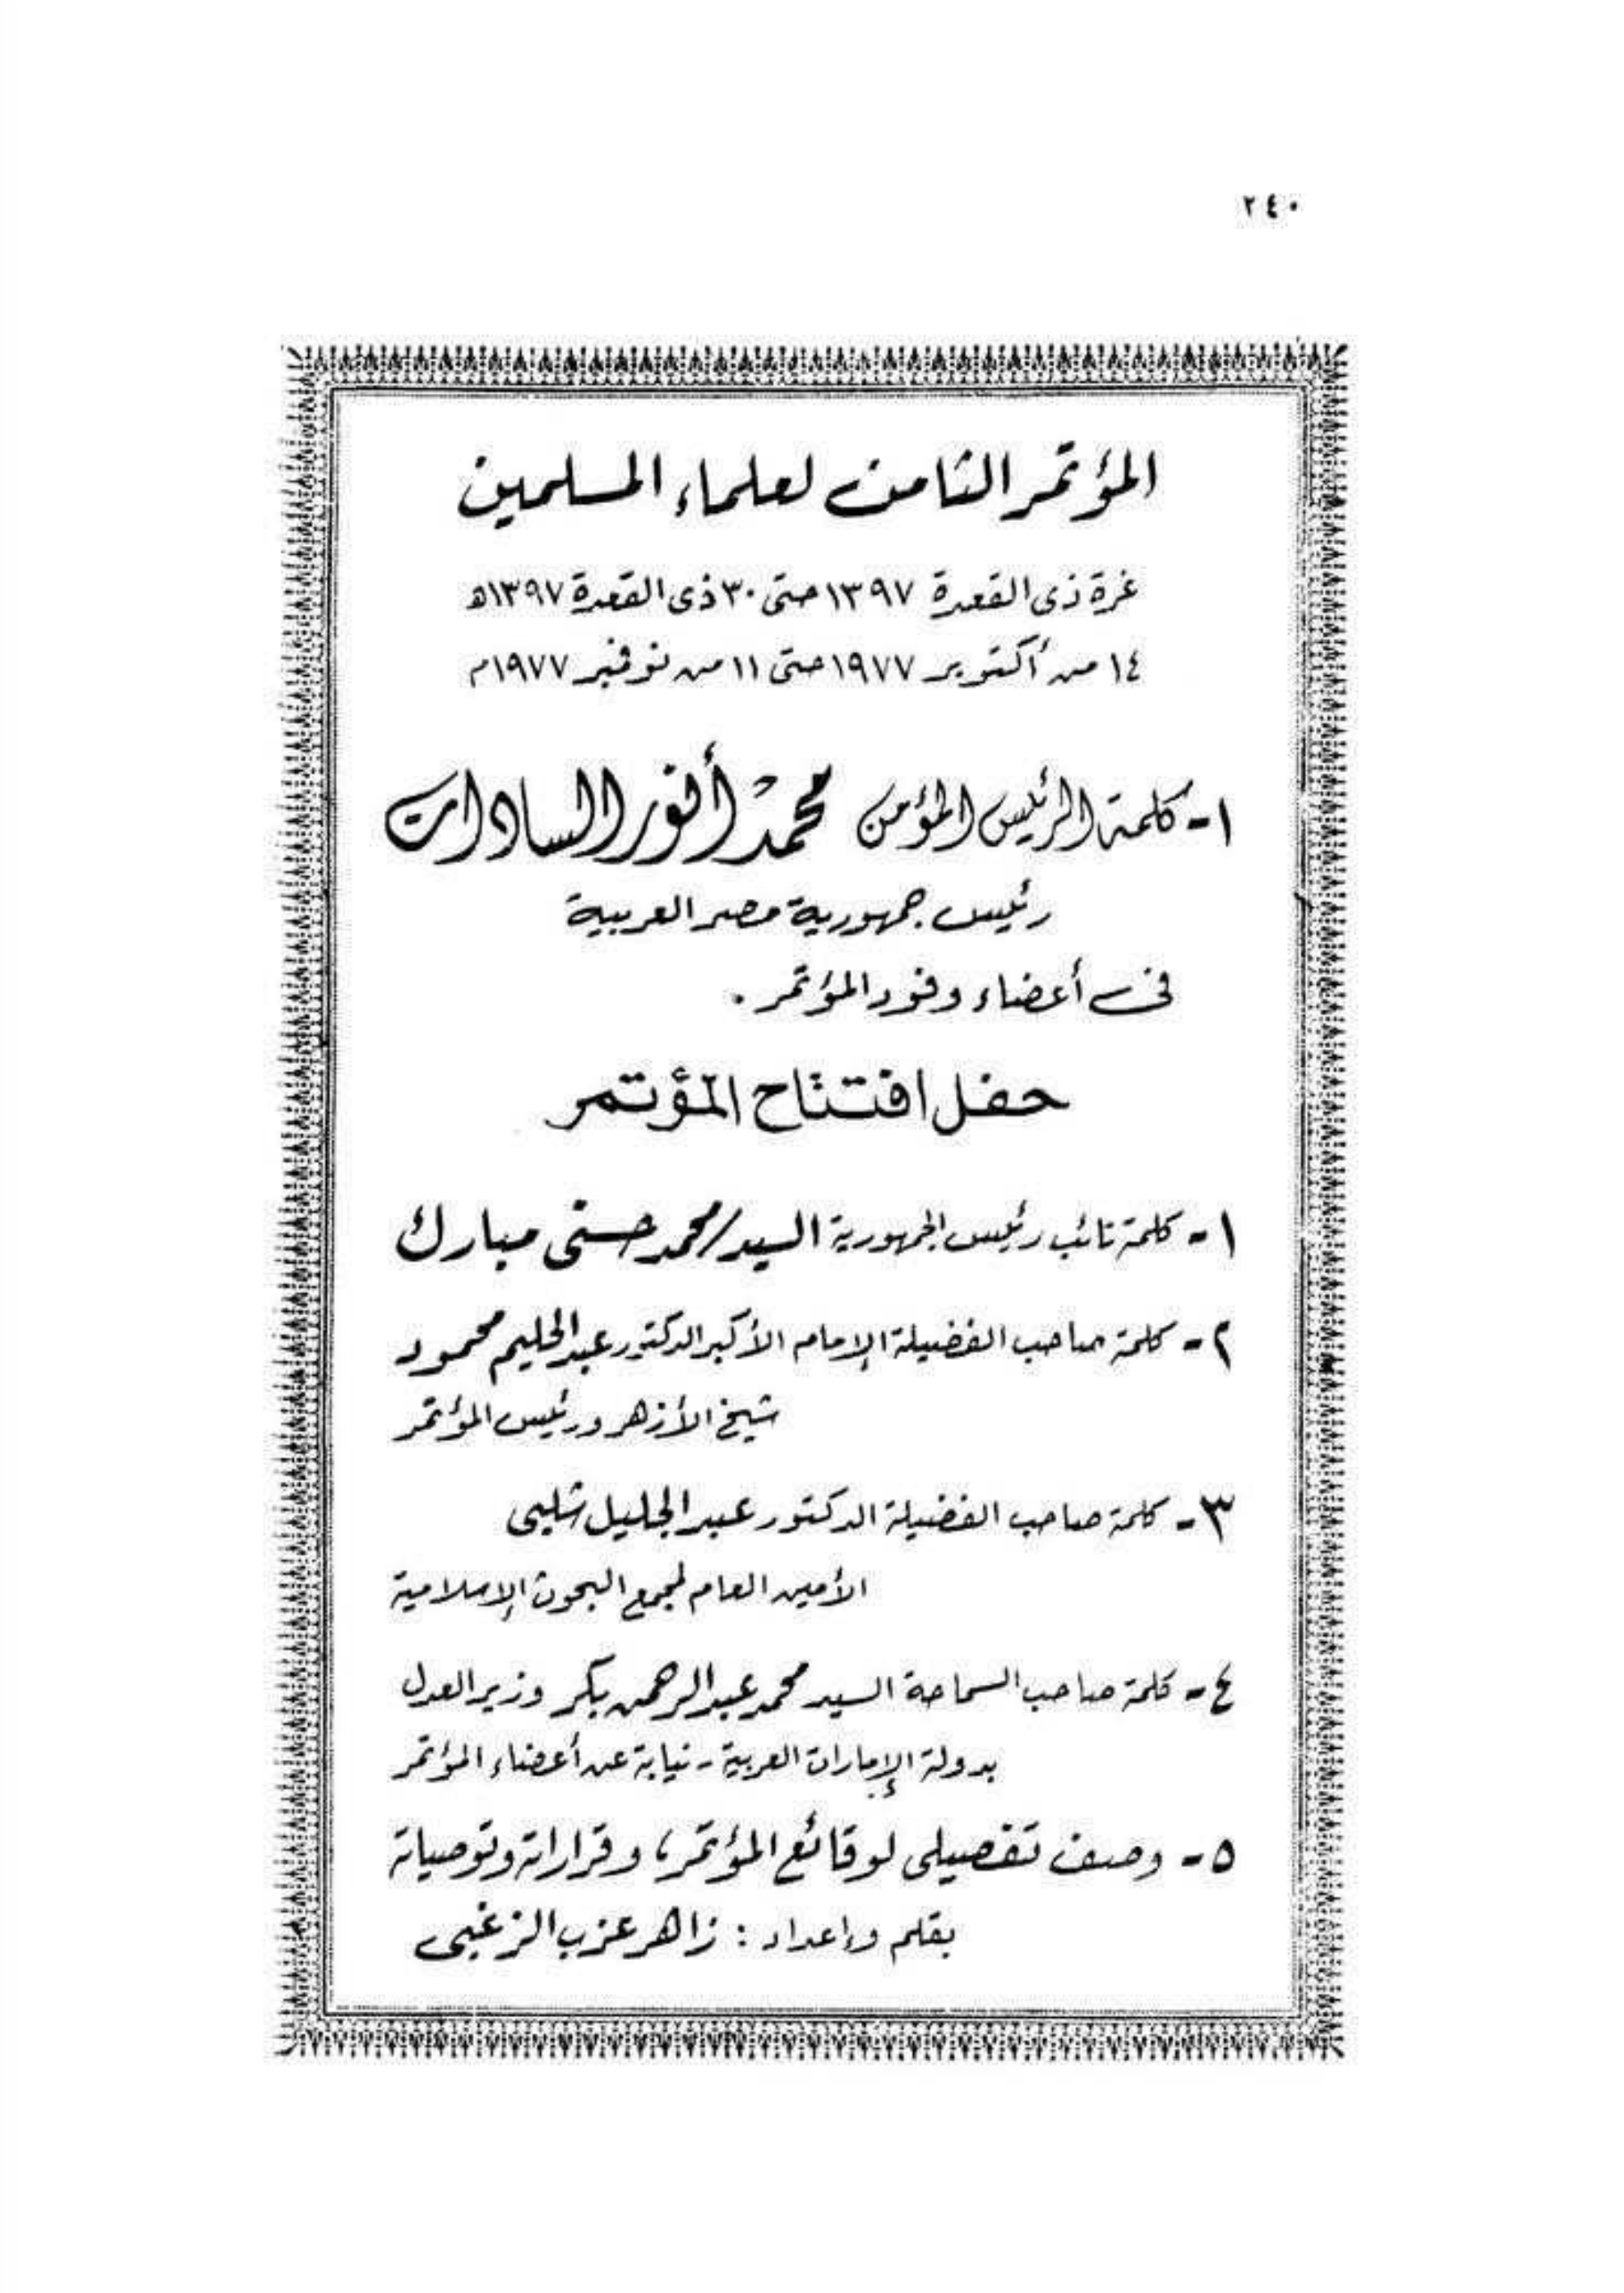 ٢٤٠
المؤتمر الثامن لعلماء المسلمين
غرة ذى القعدة ١٣٩٧ حتى ٣٠ ذى القعدة ١٣٩٧هـ
١٤ من أكتوبر ١٩٧٧ حتى ١١ من نوفمبر ١٩٧٧م
١- كلمة الرئيس المؤمن محمد أنور السادات
رئيس جمهورية مصر العربية
فى أعضاء وفود المؤتمر .
حفل افتتاح المؤتمر
١- كلمة نائب رئيس الجمهورية السيد/ محمد حسنى مبارك
٢- كلمة صاحب الفضيلة الإمام الأكبر الدكتور عبد الحليم محمود
شيخ الأزهر ورئيس المؤتمر
٣- كلمة صاحب الفضيلة الدكتور عبد الجليل شلبى
الأمين العام لمجمع البحوث الإسلامية
٤- كلمة صاحب السماحة السيد محمد عبد الرحمن بكر وزير العدل
بدولة الإمارات العربية - نيابة عن أعضاء المؤتمر
٥- وصف تفصيلى لوقائع المؤتمر، وقراراته وتوصياته
بقلم وإعداد : زاهر عزب الزغبى